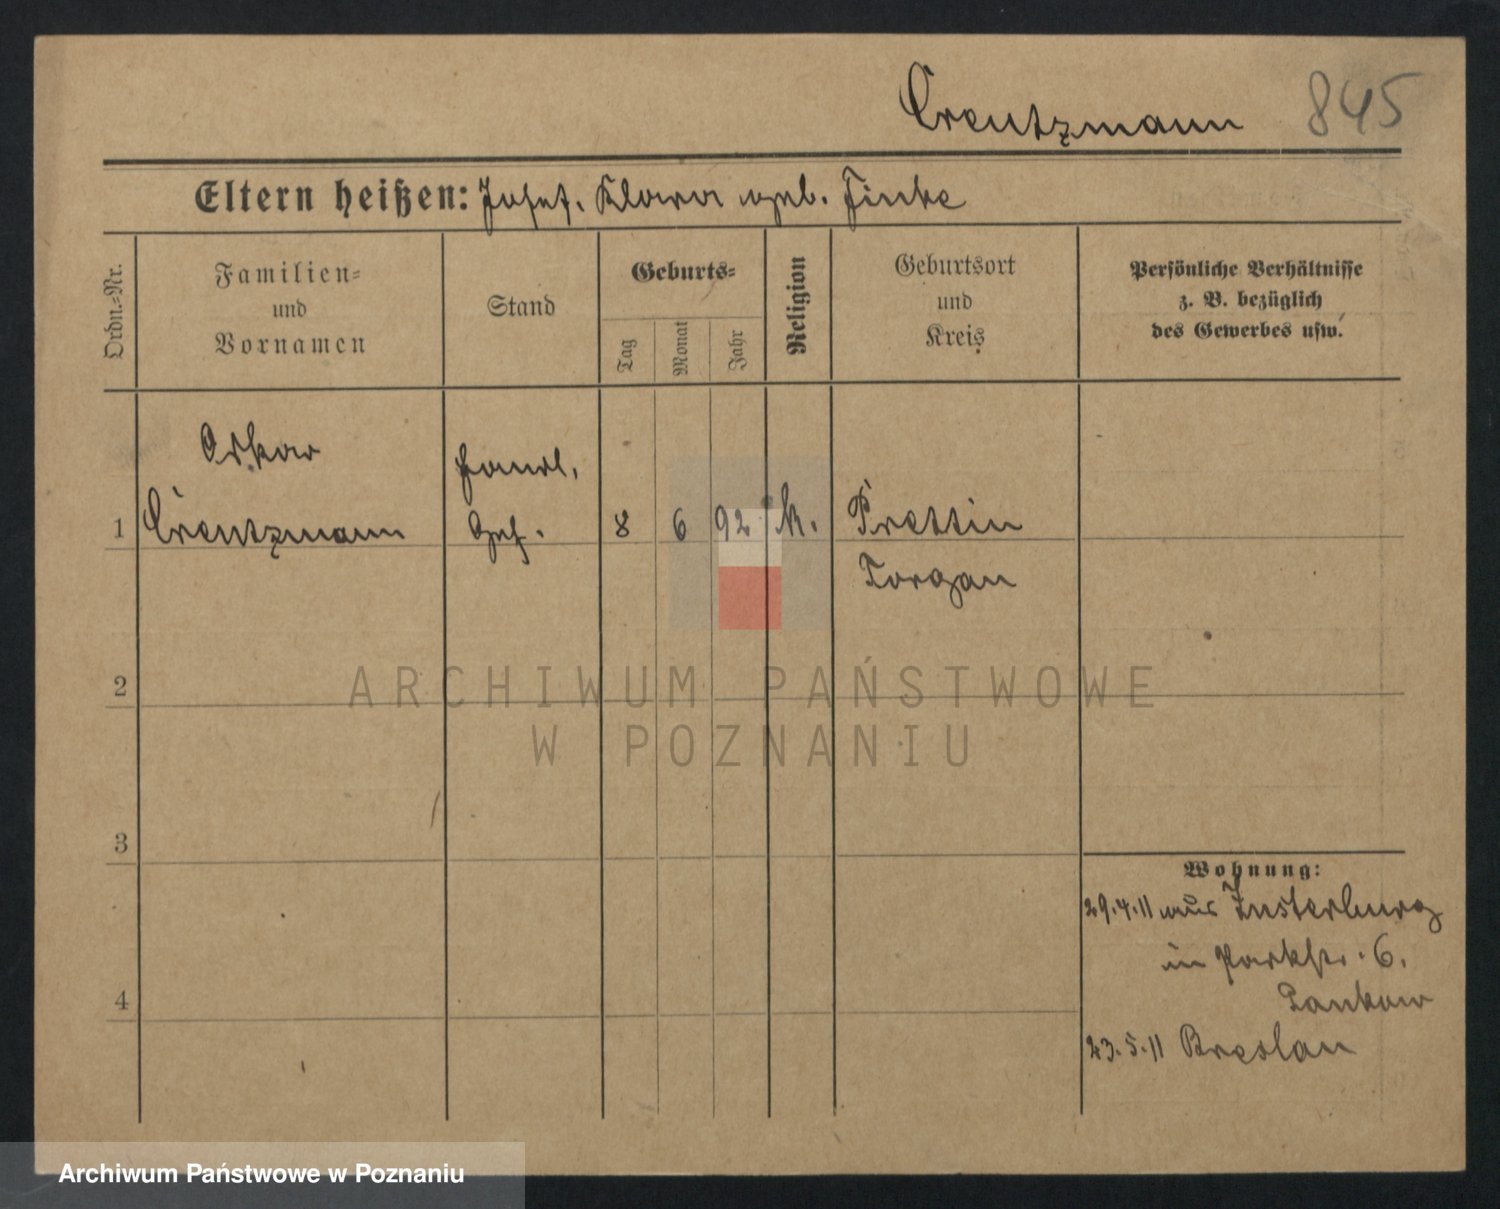 Creutzmann 845
Eltern heißen: Josef, Klara geb. Finke
Ordn.=Nr.
Familien=
und
Vornamen
Stand
Geburts=
Tag
Monat
Jahr
Religion
Geburtsort
und
Kreis
Persönliche Verhältnisse
z. B. bezüglich
des Gewerbes usw.
Oskar Handl.
1 Creutzmann Geh. 8 6 92 k. Prettin
Torgau
2
3
4
Wohnung:
29.4.11 aus Insterburg
in Parkstr. 6.
Pankow
23.5.11 Breslau
ARCHIWUM PAŃSTWOWE
W POZNANIU
Archiwum Państwowe w Poznaniu